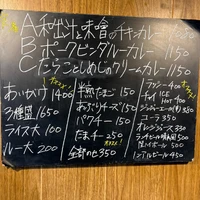 A 和出汁と味噌のチキンカレー
B ポークビンダルーカレー 1150
C たらことしめじのクリームカレー 1150
あいがけ 1400
3種盛 1650
ライス大 100
ルー大 200
オススメ!
半熟たまご 150
あぶりチーズ 150
パクチー 150
たまチー 250
オススメ!
全部のせ 350
ラッシー 400
チャイ ICE
Hot 400
ジンジャーエール(辛) 380
コーラ 350
オレンジジュース 330
ランチビール 500
450